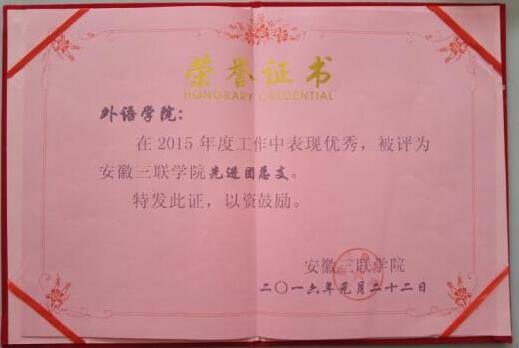 荣誉证书
HONORARY CREDENTIAL
外语学院：
在2015年度工作中表现优秀，被评为
安徽三联学院先进团总支。
特发此证，以资鼓励。
安徽三联学院
二〇一六年元月二十二日